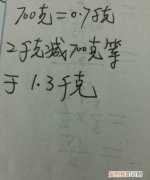 700克=0.7千克
2千克减700克等
于1.3千克